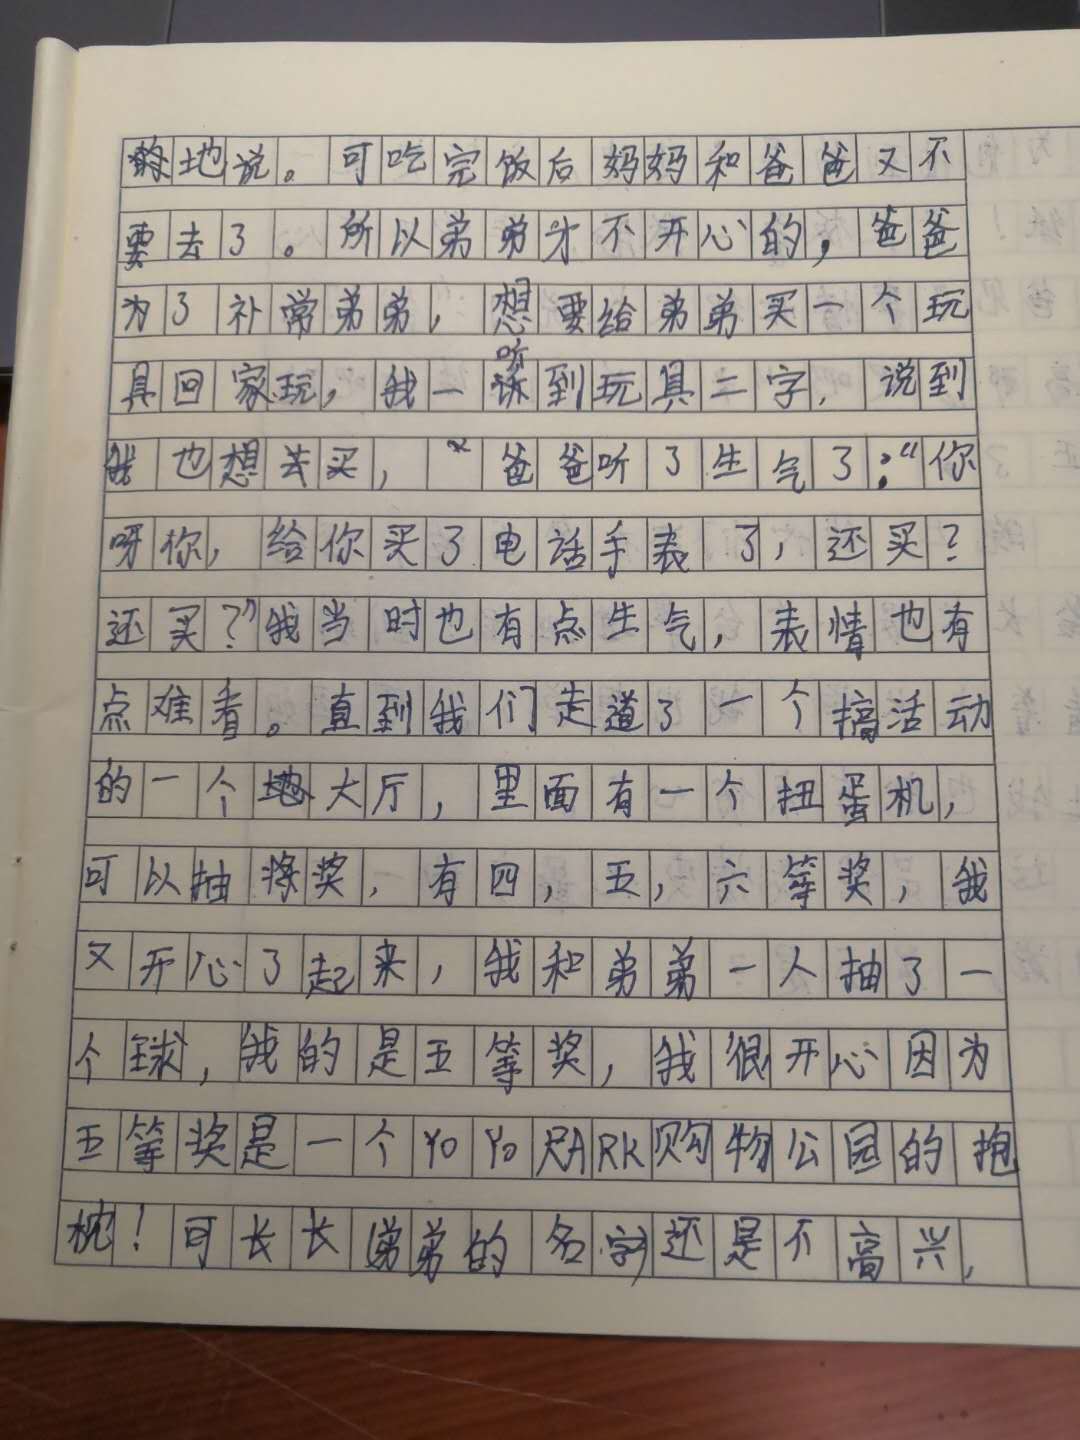 地说。可吃完饭后妈妈和爸爸又不
要去了。所以弟弟才不开心的，爸爸
为了补常弟弟，想要给弟弟买一个玩
具回家玩，我一听到玩具二字，说到
我也想去买，爸爸听了生气了：“你
呀你，给你买了电话手表了，还买？
还买？”我当时也有点生气，表情也有
点难看。直到我们走道了一个搞活动
的一个大厅，里面有一个扭蛋机，
可以抽奖，有四，五，六等奖，我
又开心了起来，我和弟弟一人抽了一
个球，我的是五等奖，我很开心因为
五等奖是一个YoYo PARK购物公园的抱
枕！可长长弟弟的名字还是不高兴，